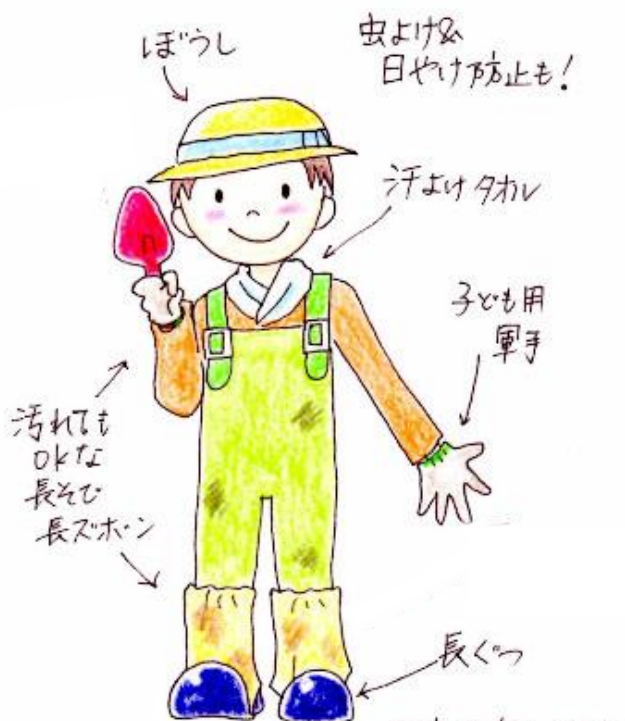 ぼうし
虫よけ&
日やけ防止も!
汗よけタオル
子ども用
軍手
汚れても
OKな
長そで
長ズボン
長ぐつ